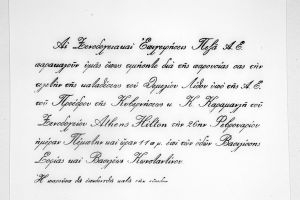 Αἱ Ξενοδοχειακαί Ἐπιχειρήσεις Πεξά Α.Ε.
παρακαλοῦν ὑμᾶς ὅπως τιμήσητε διά τῆς παρουσίας σας τήν
τελετήν τῆς καταθέσεως τοῦ Θεμελίου Λίθου ὑπό τῆς Α.Ε.
τοῦ Προέδρου τῆς Κυβερνήσεως κ. Κ. Καραμανλῆ τοῦ
Ξενοδοχείου Athens Hilton τήν 26ην Φεβρουαρίου
ἡμέραν Πέμπτην καί ὥραν 11 π.μ. ἐπί τῶν ὁδῶν Βασιλίσσης
Σοφίας καί Βασιλέως Κωνσταντίνου
Ἡ παροῦσα νά ἐπιδειχθῆ κατά τήν εἴσοδον